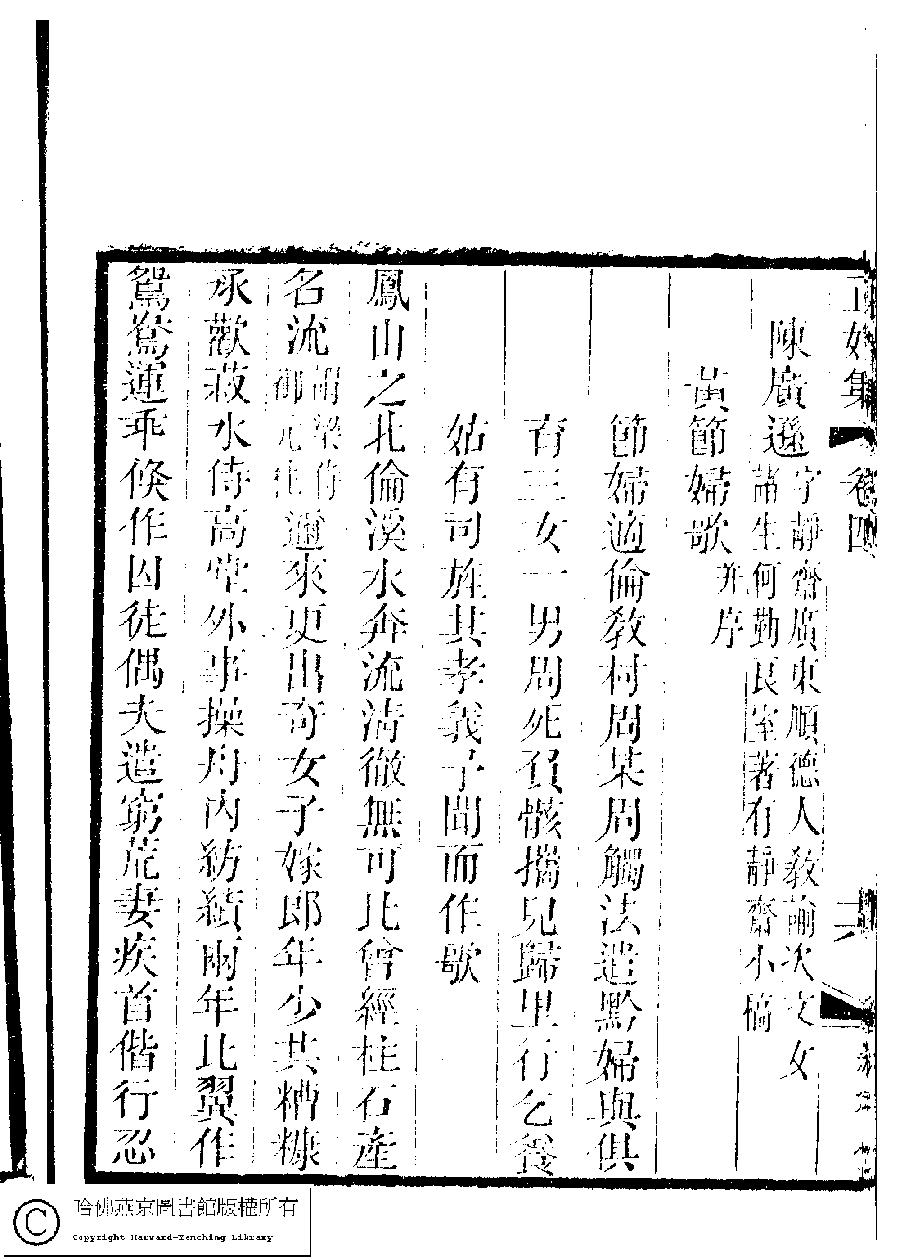 正始集 卷四 六
陳廣遜 字靜齋廣東順德人敎諭次文女
諸生何勤良室著有靜齋小稿
黃節婦歌 并序
節婦適倫敎村周某周觸法遣黔婦與俱
育三女一男周死負骸攜兒歸里行乞養
姑有司旌其孝義予聞而作歌
鳳山之北倫溪水奔流淸徹無可比曾經柱石產
名流 御 邇來更出奇女子嫁郎年少共糟糠
承歡菽水侍高堂外事操舟內紡績兩年比翼作
鴛鴦運乖倏作囚徒偶夫遣窮荒妻疾首偕行忍
哈佛燕京圖書館版權所有
Copyright Harvard-Yenching Library